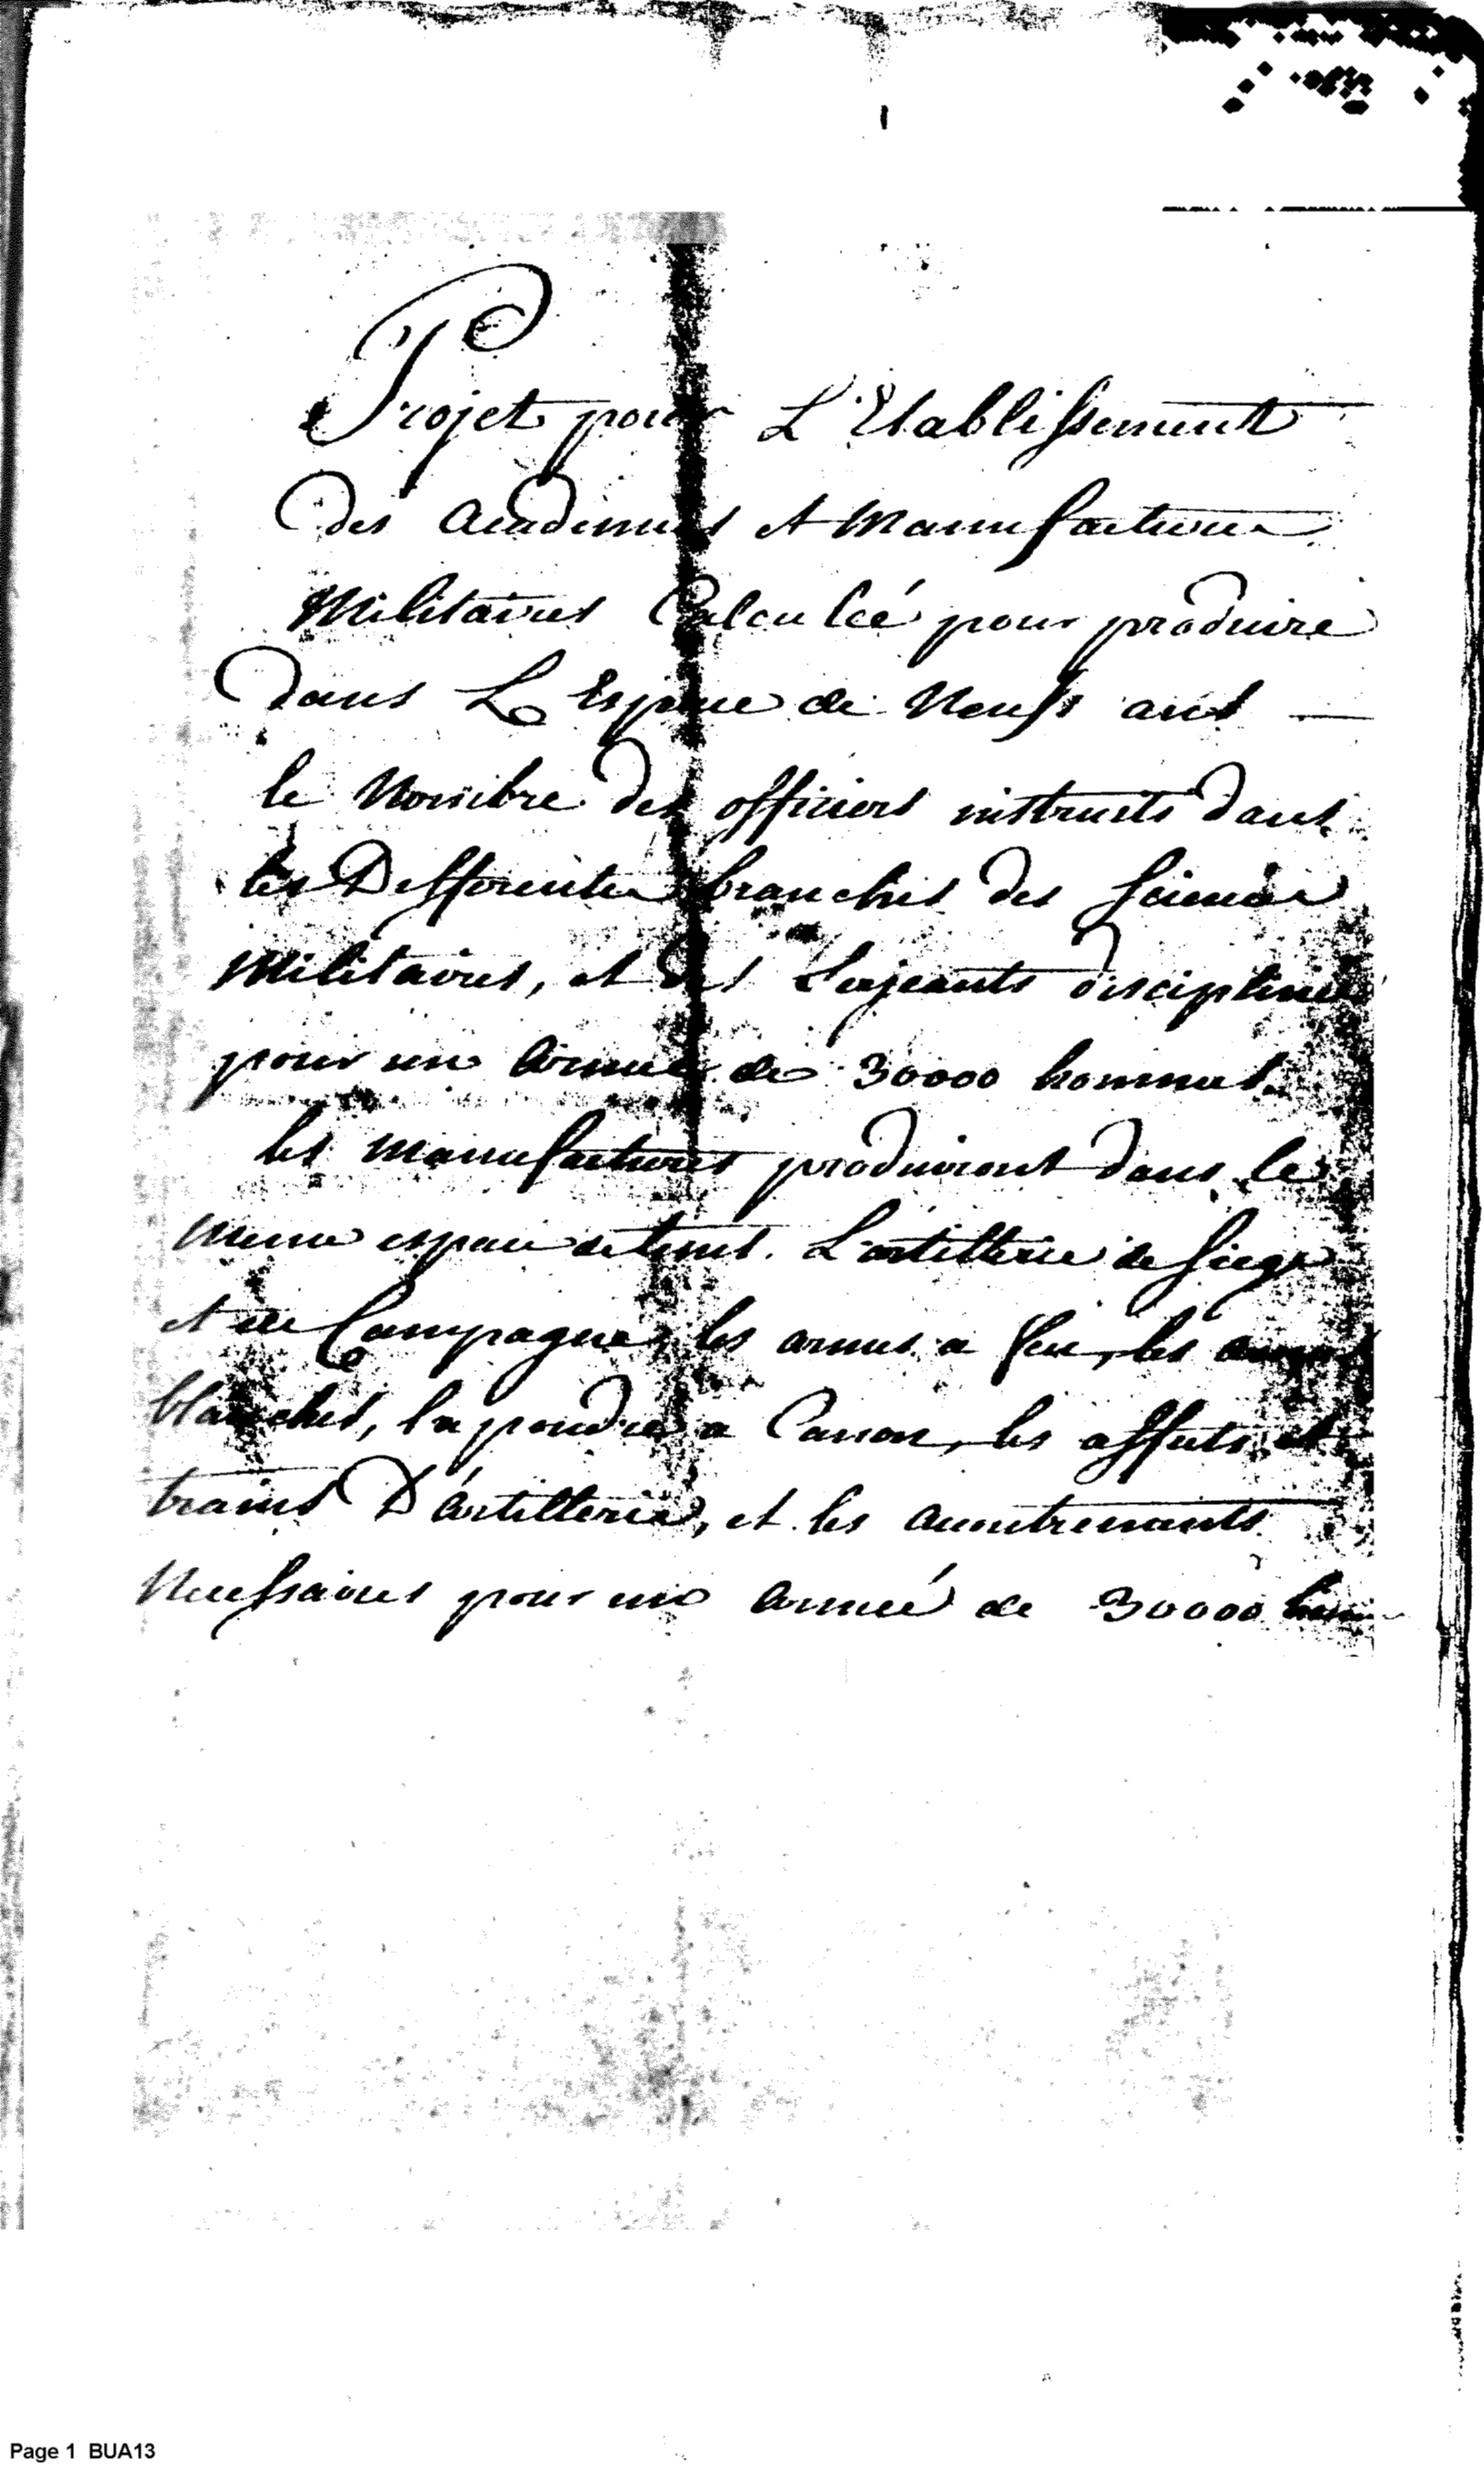 Projet pour L'Etablissement
des academies et manufactures
Militaires Calculeé pour produire
dans L'Espace de Neufs ans —
le Nombre des officiers instruits dans
les Differentes branches des sciences
Militaires, et des serjeants disciplinés
pour une armée de 30000 hommes.
les manufactures produiront dans le
meme espace de tems. L'artillerie de siege
et de Campagne, les armes a feu, les armes
blanches, la poudre a Canon, les affuts et
trains D'artillerie, et les accoutrements
Necessaires pour une armeé de 30000 hom
Page 1 BUA13